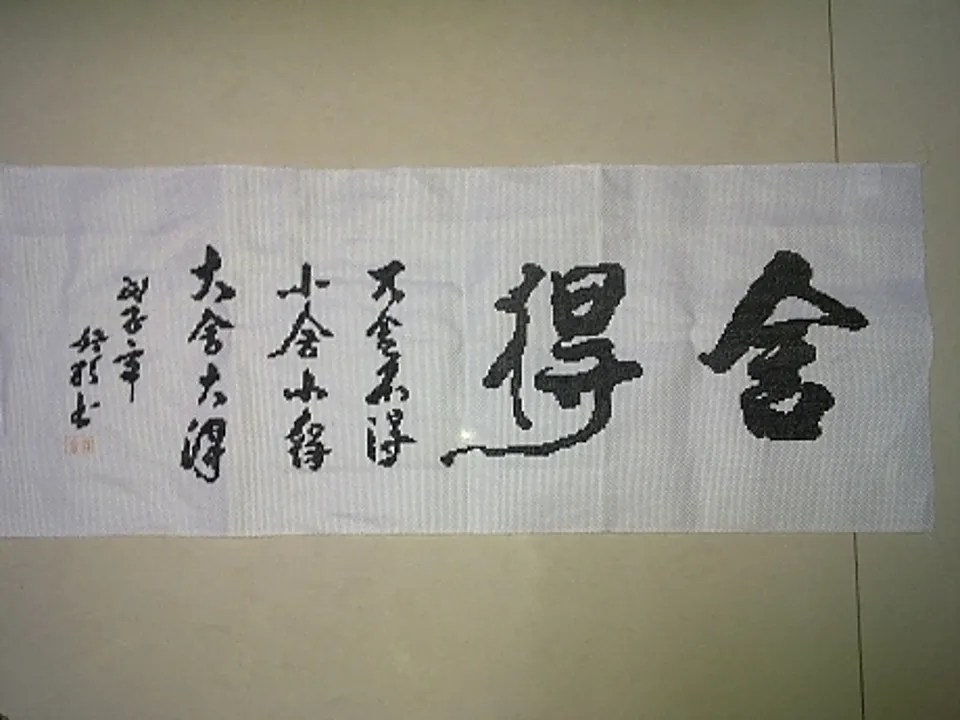 舍
得
不舍不得
小舍小得
大舍大得
戊子年